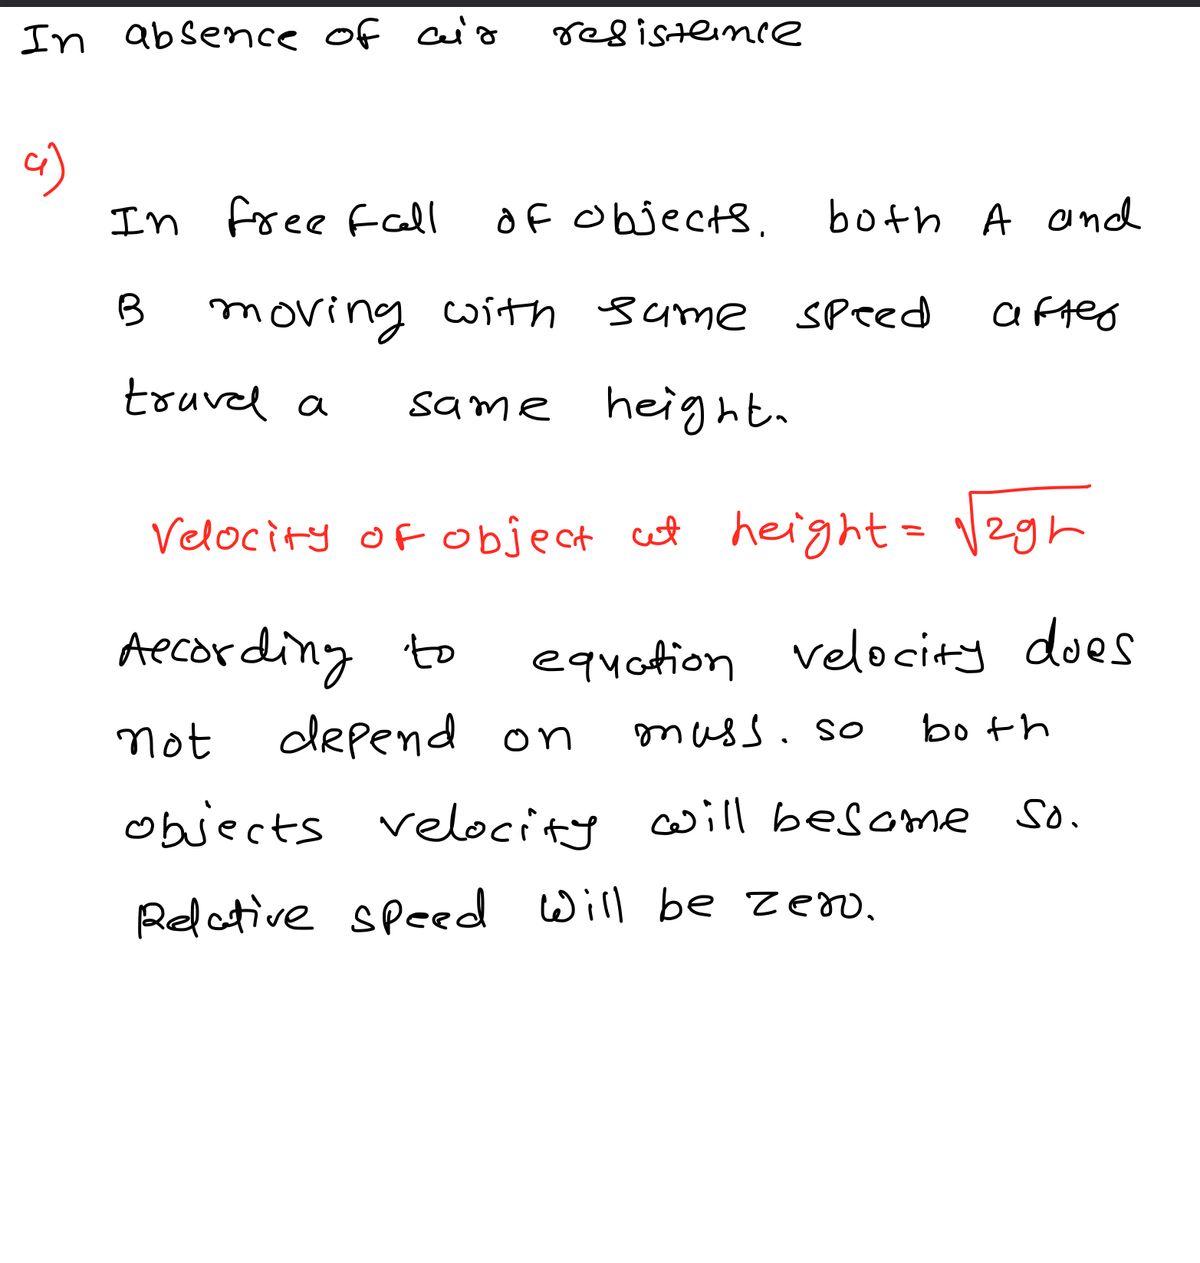 In absence of air resistance
a)
In free fall of objects. both A and
B moving with same speed after
travel a same height.
Velocity of object at height = √2gh
According to equation velocity does
not depend on mass. so both
objects velocity will be same so.
Relative speed will be zero.